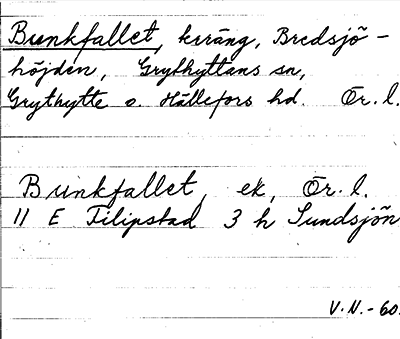 Bunkfallet, kärräng, Bredsjö-
höjden, Grythyttans sn,
Grythytte o. Hällefors hd. Ör. l.
Bunkfallet, ek, Ör. l.
11 E Filipstad 3 h Sundsjön
V.N.-60.